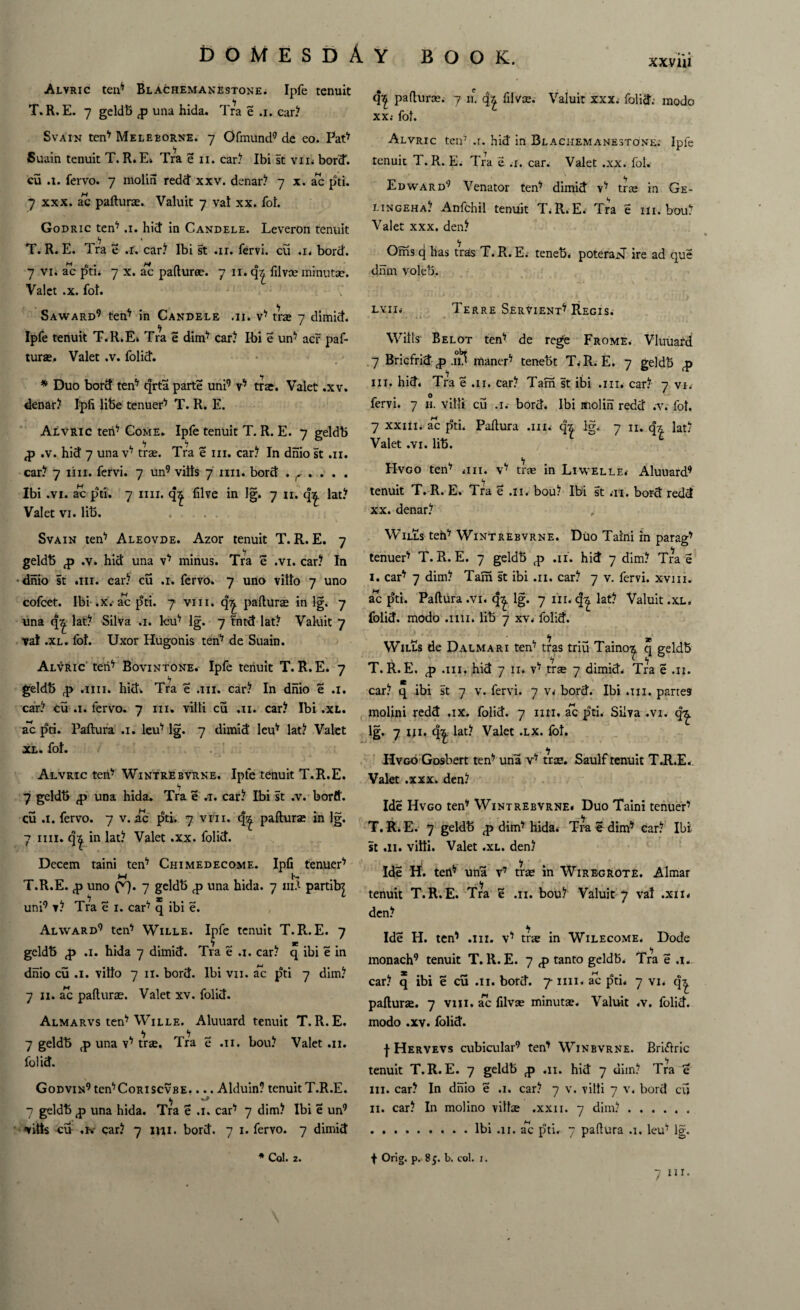 DOMESDAY BOOK.
xxviii
Alvric ten⁹ Blachemanestone. Ipſe tenuit
T.R.E. ⁊ geldƀ ꝓ una hida. Tra ē .i. car̃
Svain ten⁹ Meleborne. ⁊ Oſmund⁹ de eo. Pat⁹
Suain tenuit T.R.E. Tra ē ii. car̃ Ibi st vii. bord.
cū .i. ſervo. ⁊ molin redd xxv. denar̃ ⁊ x. ac p̃ti.
⁊ xxx. ac paſturæ. Valuit ⁊ val xx. ſol.
Godric ten⁹ .i. hid in Candele. Leveron tenuit
T.R.E. Tra ē .i. car̃ Ibi st .ii. ſervi. cū .i. bord.
⁊ vi. ac p̃ti. ⁊ x. ac paſturæ. ⁊ ii. qꝫ ſilvæ minutæ.
Valet .x. ſol.
Saward⁹ ten⁹ in Candele .ii. v⁹ træ ⁊ dimid.
Ipſe tenuit T.R.E. Tra ē dim⁹ car̃ Ibi ē un⁹ acr̃ paſ-
turæ. Valet .v. ſolid.
* Duo bord ten⁹ qrtā partē uni⁹ v⁹ træ. Valet .xv.
denar̃ Ipſi liƀe tenuer⁹ T.R.E.
Alvric ten⁹ Come. Ipſe tenuit T.R.E. ⁊ geldƀ
ꝓ .v. hid ⁊ una v⁹ træ. Tra ē iii. car̃ In dñio st .ii.
car̃ ⁊ iiii. ſervi. ⁊ un⁹ vills ⁊ iiii. bord . . . . . .
Ibi .vi. ac p̃ti. ⁊ iiii. qꝫ ſilve in lḡ. ⁊ ii. qꝫ lat̃
Valet vi. liƀ.
Svain ten⁹ Aleovde. Azor tenuit T.R.E. ⁊
geldƀ ꝓ .v. hid una v⁹ minus. Tra ē .vi. car̃ In
dñio st .iii. car̃ cū .i. ſervo. ⁊ uno villo ⁊ uno
coſcet. Ibi .x. ac p̃ti. ⁊ viii. qꝫ paſturæ in lḡ. ⁊
una qꝫ lat̃ Silva .i. leu⁹ lḡ. ⁊ tñtd lat̃ Valuit ⁊
val .xl. ſol. Uxor Hugonis ten⁹ de Suain.
Alvric ten⁹ Bovintone. Ipſe tenuit T.R.E. ⁊
geldƀ ꝓ .iiii. hid. Tra ē .iii. car̃ In dñio ē .i.
car̃ cū .i. ſervo. ⁊ iii. villi cū .ii. car̃ Ibi .xl.
ac p̃ti. Paſtura .i. leu⁹ lḡ. ⁊ dimid leu⁹ lat̃ Valet
xl. ſol.
Alvric ten⁹ Wintrebvrne. Ipſe tenuit T.R.E.
⁊ geldƀ ꝓ una hida. Tra ē .i. car̃ Ibi st .v. bord.
cū .i. ſervo. ⁊ v. ac p̃ti. ⁊ viii. qꝫ paſturæ in lḡ.
⁊ iiii. qꝫ in lat̃ Valet .xx. ſolid.
Decem taini ten⁹ Chimedecome. Ipſi tenuer⁹
T.R.E. ꝓ uno M̃. ⁊ geldƀ ꝓ una hida. ⁊ iii. partibꝫ
uni⁹ v̄ Tra ē i. car⁹ q̄ ibi ē.
Alward⁹ ten⁹ Wille. Ipſe tenuit T.R.E. ⁊
geldƀ ꝓ .i. hida ⁊ dimid. Tra ē .i. car̃ q̄ ibi ē in
dñio cū .i. villo ⁊ ii. bord. Ibi vii. ac p̃ti ⁊ dim̃
⁊ ii. ac paſturæ. Valet xv. ſolid.
Almarvs ten⁹ Wille. Aluuard tenuit T.R.E.
⁊ geldƀ ꝓ una v⁹ træ. Tra ē .ii. bou̇ Valet .ii.
ſolid.
Godvin⁹ ten⁹ Coriscvbe. . . . Alduin⁹ tenuit T.R.E.
⁊ geldƀ ꝓ una hida. Tra ē .i. car⁹ ⁊ dim̃ Ibi ē un⁹
vills cū .i. car̃ ⁊ iiii. bord. ⁊ i. ſervo. ⁊ dimid
* Col. 2.
qꝫ paſturæ. ⁊ ii. qꝫ ſilvæ. Valuit xxx. ſolid. modo
xx. ſol.
Alvric ten⁹ .i. hid in Blachemanestone. Ipſe
tenuit T.R.E. Tra ē .i. car. Valet .xx. ſol.
Edward⁹ Venator ten⁹ dimid v⁹ træ in Ge-
lingeha⁹ Anſchil tenuit T.R.E. Tra ē iii. bou̇
Valet xxx. den̄
Oms q̄ has tras T.R.E. teneƀ. poteraN ire ad que
dnm voleƀ.
lvii. Terre Servient⁹ Regis.
Wills Belot ten⁹ de rege Frome. Vluuard
⁊ Briefrid ꝓ .ii. maner⁹ teneƀt T.R.E. ⁊ geldƀ ꝓ
iii. hid. Tra ē .ii. car̃ Tam̄ st ibi .iii. car̃ ⁊ vi.
ſervi. ⁊ ii. villi cū .i. bord. Ibi molin redd .v. ſol.
⁊ xxiii. ac p̃ti. Paſtura .iii. qꝫ lḡ. ⁊ ii. qꝫ lat̃
Valet .vi. liƀ.
Hvgo ten⁹ .iii. v⁹ træ in Liwelle. Aluuard⁹
tenuit T.R.E. Tra ē .ii. bou̇ Ibi st .ii. bord redd
xx. denar̃
Wills ten⁹ Wintrebvrne. Duo Taini in parag⁹
tenuer⁹ T.R.E. ⁊ geldƀ ꝓ .ii. hid ⁊ dim̃ Tra ē
i. car⁹ ⁊ dim̃ Tam̄ st ibi .ii. car̃ ⁊ v. ſervi. xviii.
ac p̃ti. Paſtura .vi. qꝫ lḡ. ⁊ iii. qꝫ lat̃ Valuit .xl.
ſolid. modo .iiii. liƀ ⁊ xv. ſolid.
Wills de Dalmari ten⁹ tras triū Tainoꝝ q̄ geldƀ
T.R.E. ꝓ .iii. hid ⁊ ii. v⁹ træ ⁊ dimid. Tra ē .ii.
car̃ q̄ ibi st ⁊ v. ſervi. ⁊ v. bord. Ibi .iii. partes
molini redd .ix. ſolid. ⁊ iiii. ac p̃ti. Silva .vi. qꝫ
lḡ. ⁊ iii. qꝫ lat̃ Valet .lx. ſol.
Hvgo Gosbert ten⁹ unā v⁹ træ. Saulf tenuit T.R.E.
Valet .xxx. den̄
Idē Hvgo ten⁹ Wintrebvrne. Duo Taini tenuer⁹
T.R.E. ⁊ geldƀ ꝓ dim⁹ hida. Tra ē dim⁹ car̃ Ibi
st .ii. villi. Valet .xl. den̄
Idē H. ten⁹ unā v⁹ træ in Wiregrote. Almar
tenuit T.R.E. Tra ē .ii. bou̇ Valuit ⁊ val .xii.
den̄
Idē H. ten⁹ .iii. v⁹ træ in Wilecome. Dode
monach⁹ tenuit T.R.E. ⁊ ꝓ tanto geldƀ. Tra ē .i.
car̃ q̄ ibi ē cū .ii. bord. ⁊ iiii. ac p̃ti. ⁊ vi. qꝫ
paſturæ. ⁊ viii. ac ſilvæ minutæ. Valuit .v. ſolid.
modo .xv. ſolid.
† Hervevs cubicular⁹ ten⁹ Winbvrne. Briĉtric
tenuit T.R.E. ⁊ geldƀ ꝓ .ii. hid ⁊ dim̃ Tra ē
iii. car̃ In dñio ē .i. car̃ ⁊ v. villi ⁊ v. bord cū
ii. car̃ In molino villæ .xxii. ⁊ dim̃ . . . . . .
. . . . . . . . . Ibi .ii. ac p̃ti. ⁊ paſtura .i. leu⁹ lḡ.
† Orig. p. 85. b. col. 1.
⁊ iii.